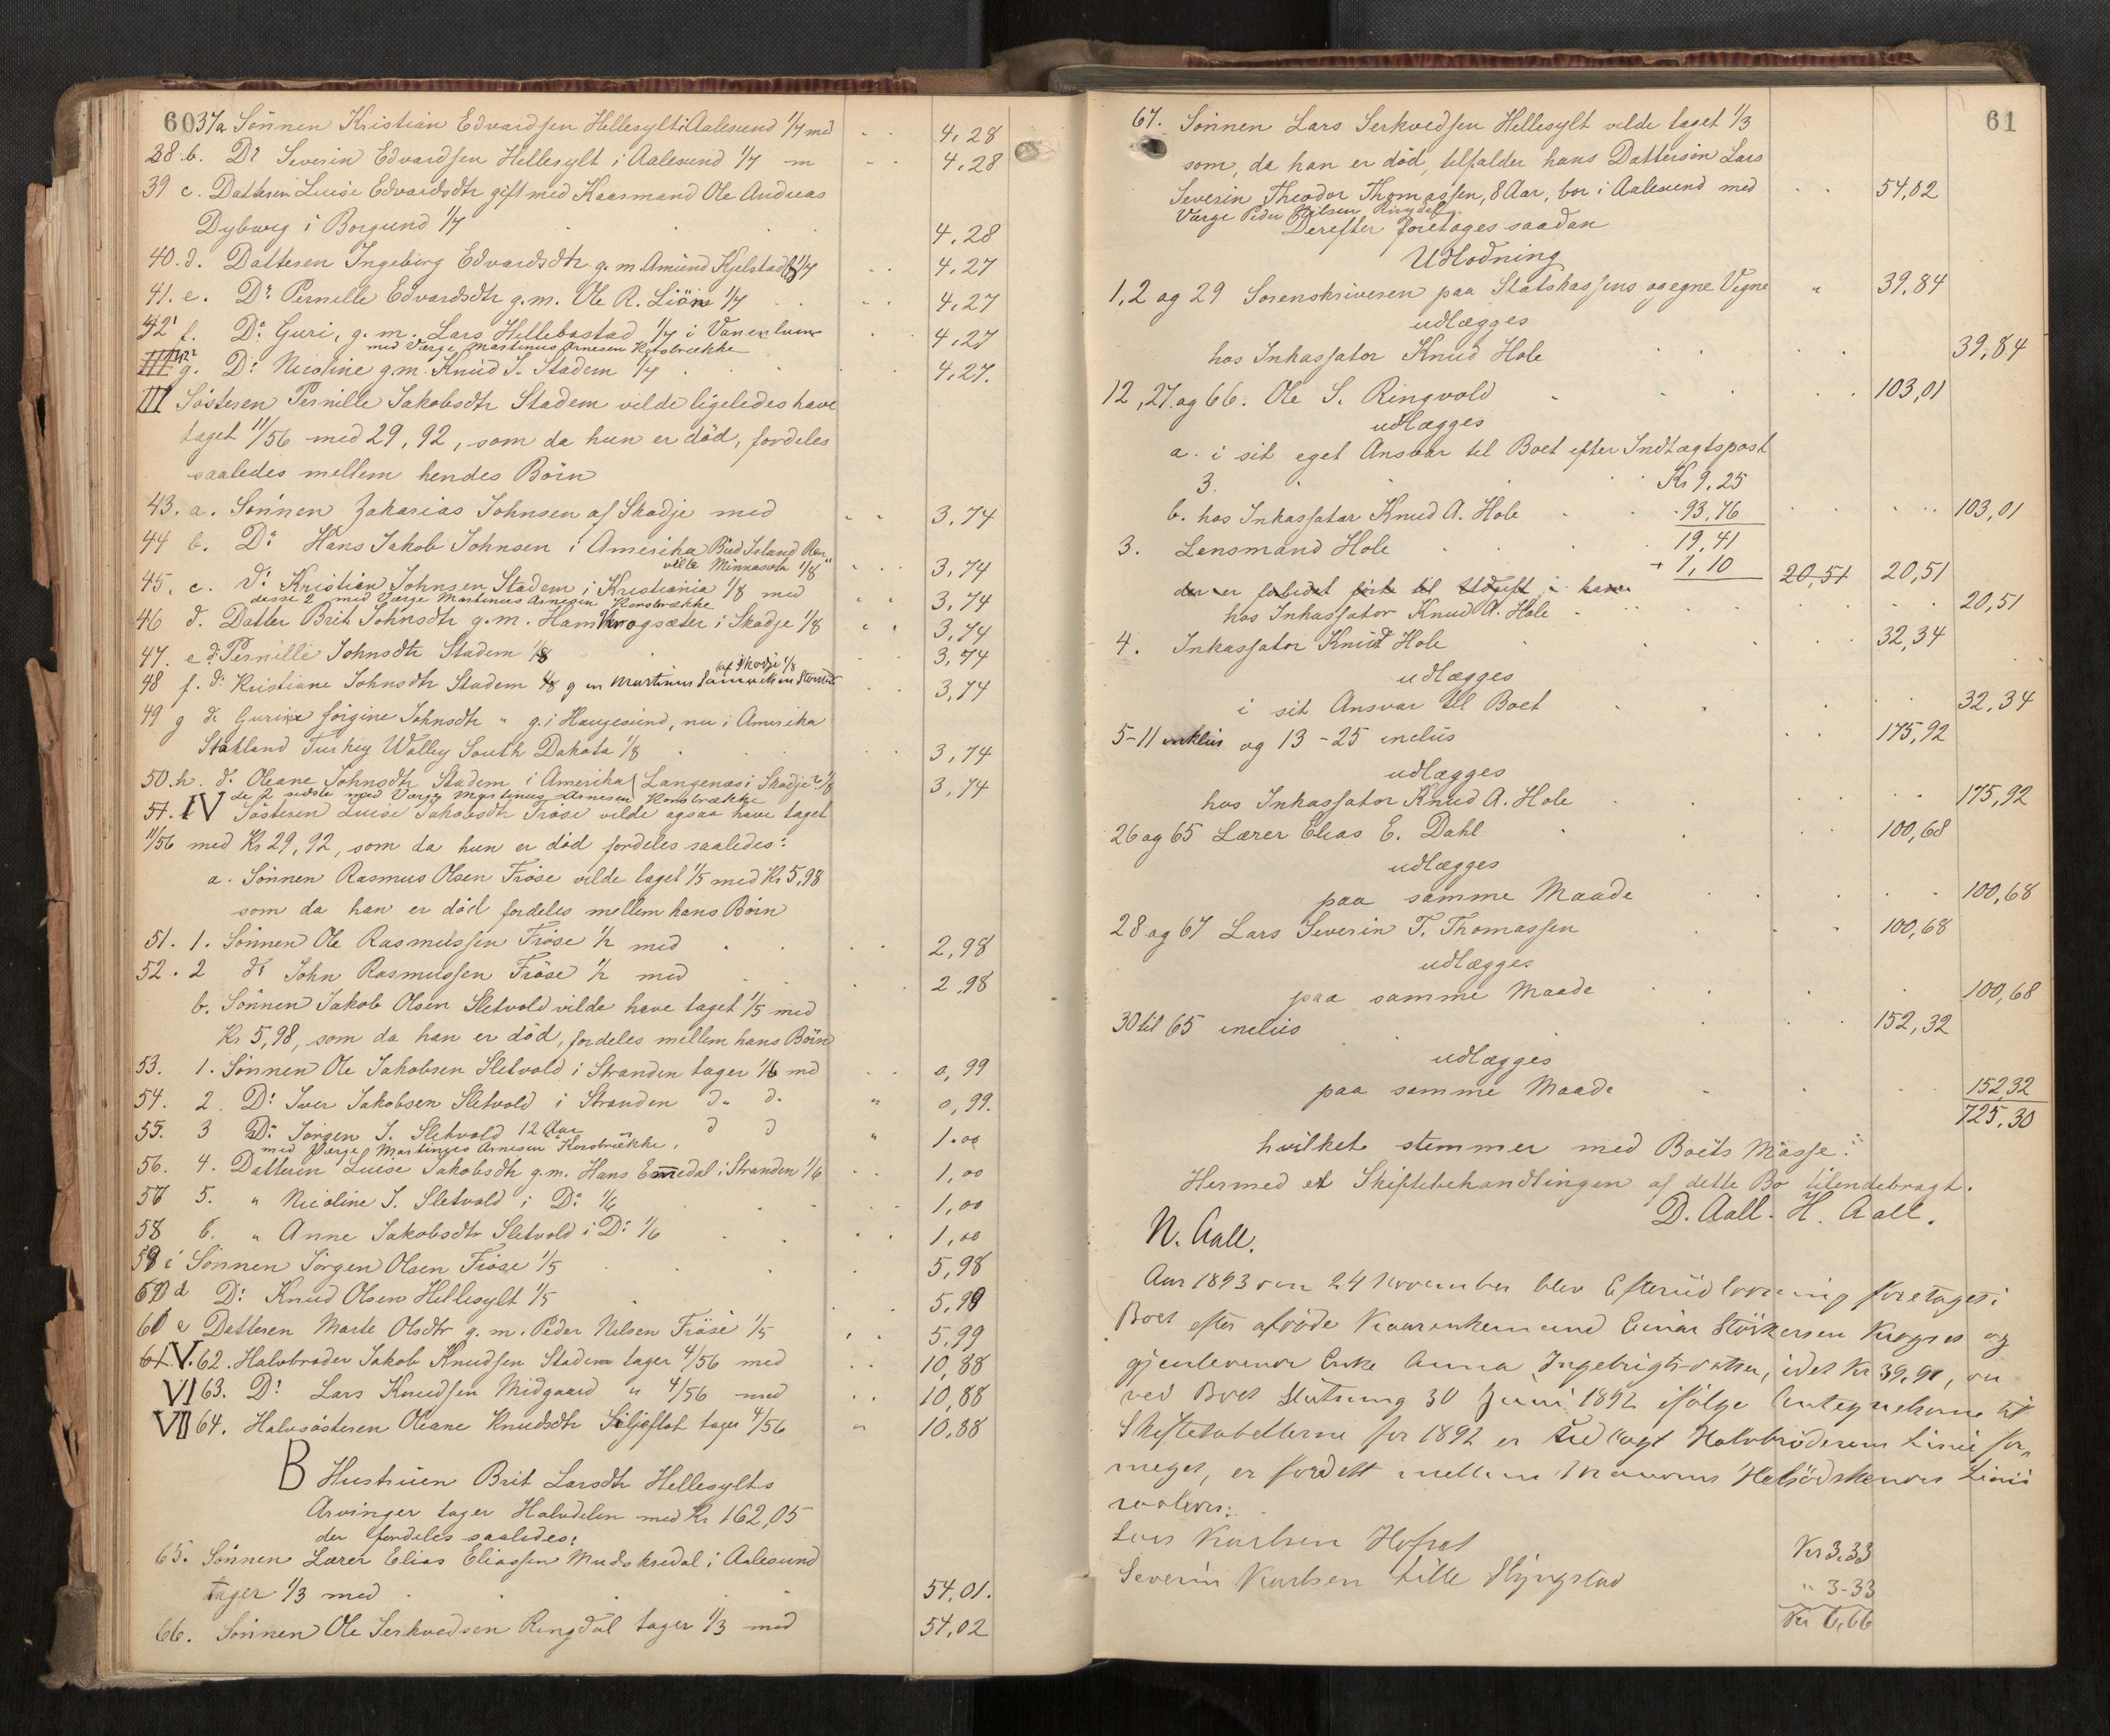 60
37a Sönnen Kristian Edvardsen Hellesylt i Aalesund 1/7 med 4,28
38.b. Do Severin Edvardsen Hellesylt i Aalesund 1/7 m 4,28
39 c. Datteren Luise Edvardsdtr gift med Kaarmand Ole Andreas
Dyburg i Borgund 1/7 4,28
40.d. Datteren Ingeborg Edvardsdtr g.m. Amund Kjelstadli 1/7 4,27
41.e. Do Pernille Edvardsdtr g.m. Ole R. Liön 1/7 4,27
42 f. Do Guri, g.m. Lars Hellebostad 1/7 i Vanelven 4,27
med Værge Martinus Arnesen Korsbrække
g. Do Nicoline g.m. Knud S. Stadem 1/7 4,27.
III Söstersen Pernille Jakobsdtr Stadem vilde ligeledes have
taget 11/56 med 29,92, som da hun er död, fordeles
saaledes mellem hendes Börn
43. a. Sönnen Zakarias Johnsen af Skodje med 3,74
44 b. Do Hans Jakob Johnsen i Amerika Bird Island Ren
ville Minnasota 1/8 3,74
45. c. Do Kristian Johnsen Stadem i Kristiania 1/8 med 3,74
disse 2 med Værge Martinus Arnesen Korsbrække
46 d. Datter Brit Johnsdtr g.m. Hans Krogsæter i Skodje 1/8 3,74
47. e do Pernille Johnsdtr Stadem 1/8 3,74
48 f. do Kristiane Johnsdtr Stadem 1/8 g m Martinus (af Skodje 1/8 3,74
49 g do Gurine Jörgine Johnsdtr " g. i Haugesund, nu i Amerika
Statland Turkey Walley South Dakota 1/8 3,74
50.h. do Oleane Johnsdtr Stadem i Amerika (Langenæs i Skodje) 1/8 3,74
de 2 sidste med Værge Martinus Arnesen Korsbrække
51. IV Sösteren Luise Jakobsdtr Fröse vilde ogsaa have taget
11/56 med Kr 29,92, som da hun er död fordeles saaledes:
a. Sönnen Rasmus Olsen Fröse vilde taget 1/5 med Kr 5,98
som da han er död fordeles mellem hans Börn
51. 1. Sönnen Ole Rasmussen Fröse 1/2 med 2,98
52. 2 do John Rasmussen Fröse 1/2 med 2,98
b. Sönnen Jakob Olsen Sletvold vilde have taget 1/5 med
Kr 5,98, som da han er död, fordeles mellem hans Börn
53. 1. Sönnen Ole Jakobsen Sletvold i Stranden tager 1/6 md 0,99
54. 2. Do Iver Jakobsen Sletvold i Stranden do do " 0,99.
55. 3 Do Jörgen J. Sletvold 12 Aar " d d " 1.00
med Værge Martinus Arnesen Korsbrække.
56. 4. Datteren Luise Jakobsdtr g.m. Hans Emmedal i Stranden 1/6 1,00
57 5. " Nicoline J. Sletvold i Do 1/6 1,00
58 6. " Anne Jakobsdtr Sletvold i Do 1/6 1,00
59 c Sönnen Jörgen Olsen Fröse 1/5 5,98
60 d Do Knud Olsen Hellesylt 1/5 5,99
61 e Datteren Marte Olsdtr g.m. Peder Nilsen Fröse 1/5 5,99
61. V. 62. Halvbroder Jakob Knudsen Stadem tager 4/56 med 10,88
VI 63. Do Lars Knudsen Midgaard " 4/56 med 10,88
VII 64. Halvsösteren Oleane Knudsdtr Siljeflot tager 4/56 " 10,88
B Hustruen Brit Larsdtr Hellesylts
Arvinger tager Halvdelen med Kr 162,05
der fordeles saaledes:
65. Sönnen Lærer Elias Eliassen Mudskredal i Aalesund
tager 1/3 med 54,01.
66. Sönnen Ole Serkvedsen Ringdal tager 1/3 med 54,02
61
67. Sönnen Lars Serkvedsen Hellesylt vilde taget 1/3
som, da han er död, tilfalder hans Dattersön Lars
Severin Theodor Thomassen, 8 Aar, bor i Aalesund med 54,02
Værge Peder Nilsen Ringdal.
Derefter foretages saadan
Udlodning
1,2 og 29 Sorenskriveren paa Statskassens og egne Vegne " 39,84
udlægges
hos Inkassator Knud Hole 39,84
12, 27 og 66. Ole S. Ringvold 103,01
udlægges
a. i sit eget Ansvar til Boet efter Indtægtspost
3. Kr 9,25
b. hos Inkassator Knud A. Hole 93,76 103,01
3. Lensmand Hole 19,41
+ 1,10 20,51 20,51
der er forledet förte til Udgift i
hos Inkassator Knud A. Hole 20,51
4. Inkassator Knud Hole 32,34
udlægges
i sit Ansvar til Boet 32,34
5-11 inklus og 13-25 inclus 175,92
udlægges
hos Inkassator Knud A. Hole 175,92
26 og 65 Lærer Elias E. Dahl 100,68
udlægges
paa samme Maade 100,68
28 og 67 Lars Severin T. Thomassen 100,68
udlægges
paa samme Maade 100,68
30 til 65 inclus 152,32
udlægges
paa samme Maade 152,32
725,30
hvilket stemmer med Boets Masse.
Hermed er Skiftebehandlingen af dette Bo tilendebragt.
D. Aall. H. Aall.
N. Aall.
Aar 1893 den 24 November blev Efterudlodning foretaget i
Boet efter afdöde Einar Störkersen og
gjenlevende Enke Anna Ingebrigtsdatter, idet Kr 39,91, der
ved Boets Slutning 30 Juni 1892 ifölge Antegnelserne til
Skiftetabellerne for 1892 er udlagt Halvbröderens Linie for
meget, er fordelt mellem Helsödskendes Linie
saaledes:
Lars Karlsen Kr 3,33
Severin Karlsen Lille " 3-33
Kr 6,66